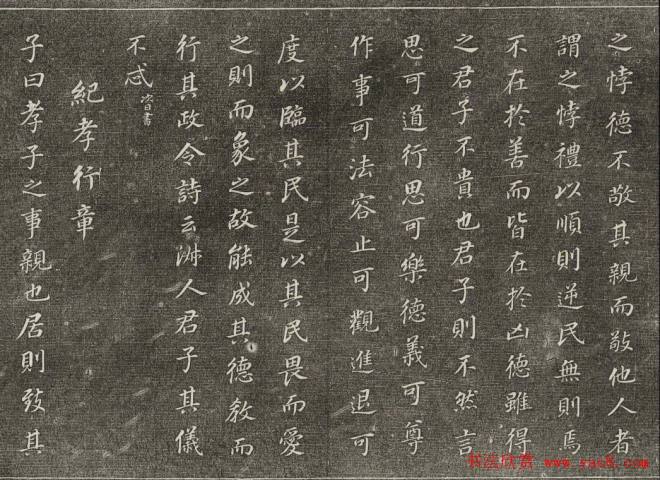 之悖德不敬其親而敬他人者
謂之悖禮以順則逆民無則焉
不在於善而皆在於凶德雖得
之君子不貴也君子則不然言
思可道行思可樂德義可尊
作事可法容止可觀進退可
度以臨其民是以其民畏而愛
之則而象之故能成其德教而
行其政令詩云淑人君子其儀
不忒 書
紀孝行章
子曰孝子之事親也居則致其
书法欣赏 www.yac8.com